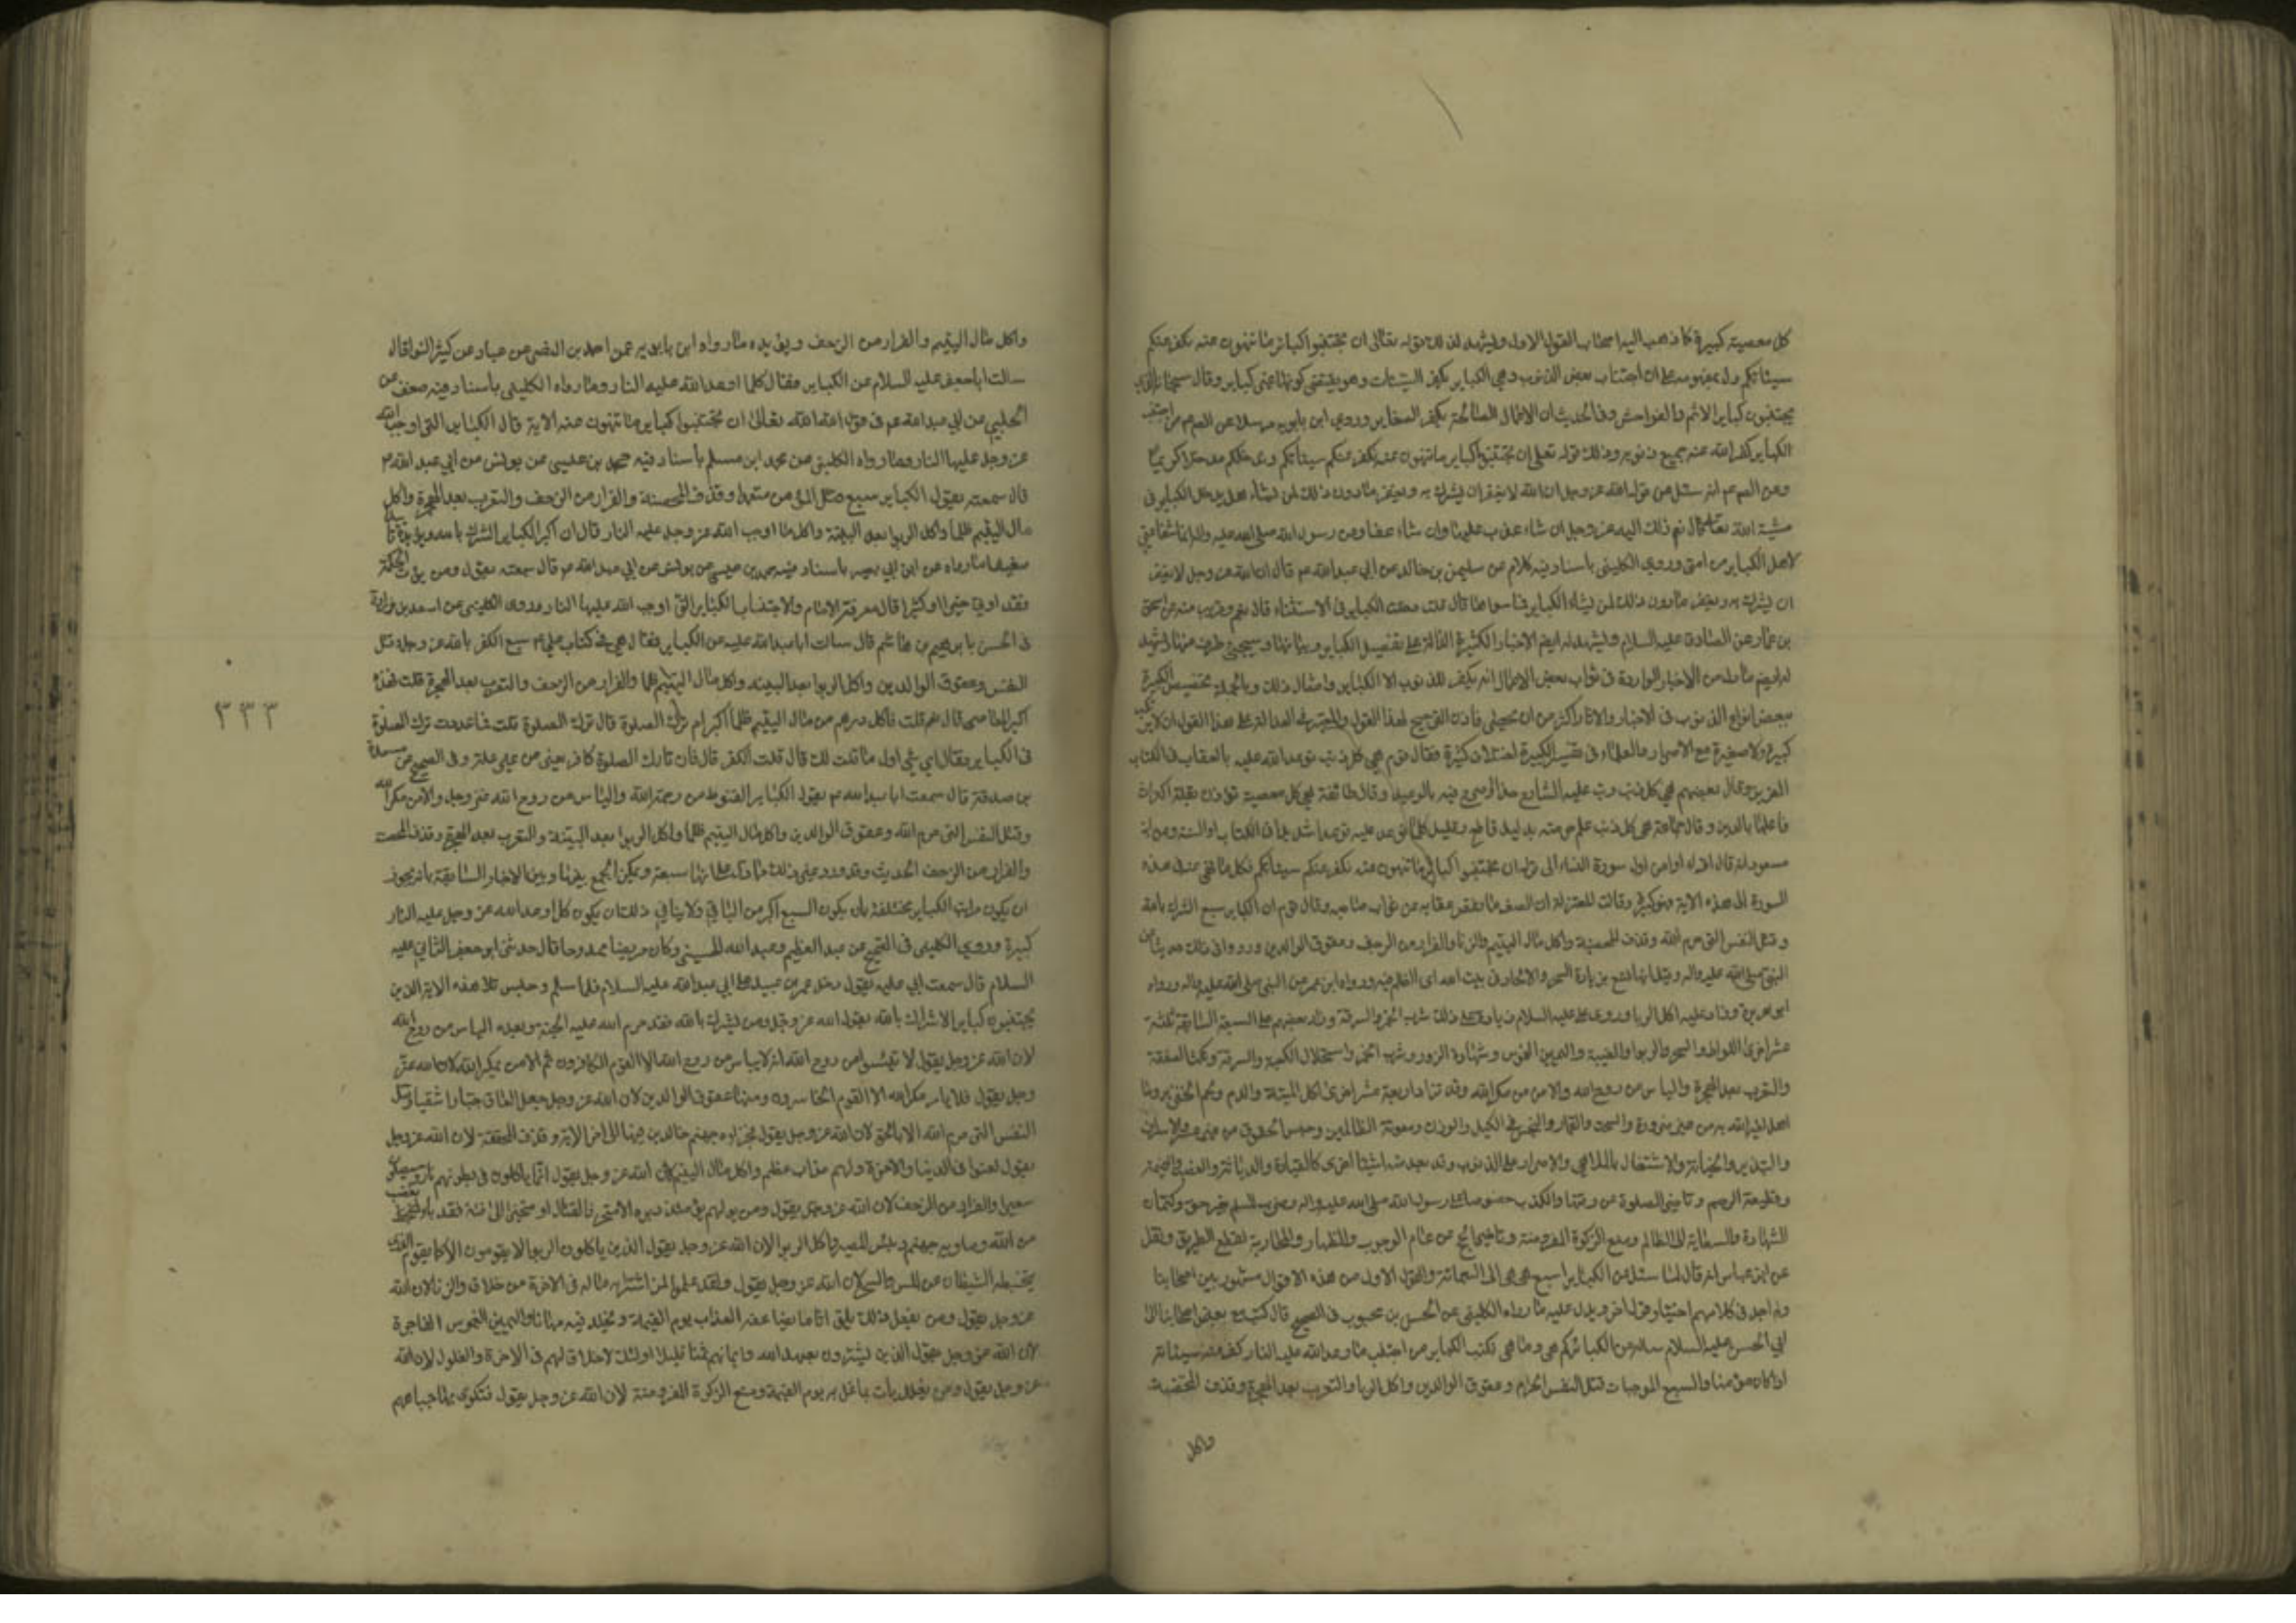 كل معصية كبيرة كما ذهب اليه اصحاب القول الاول ويشهد لذلك قوله تعالى ان تجتنبوا كبائر ما تنهون عنه نكفر عنكم
سيئاتكم دل بمفهومه على ان اجتناب بعض الذنوب وهي الكباير يكفر السيئات وهو يقتضي كونها غير كباير وقال سبحانه الذين
يجتنبون كباير الاثم والفواحش وفي الحديث ان الاعمال الصالحة يكفر الصغاير وروى ابن بابويه مرسلا عن الصم من اجتنب
الكباير كفر الله عنه جميع ذنوبه وذلك قوله تعلى ان تجتنبوا كباير ما تنهون عنه نكفر عنكم سيئاتكم وندخلكم مدخلا كريما
وعن الصم انه سئل عن قول الله عز وجل ان الله لا يغفر ان يشرك به ويغفر ما دون ذلك لمن يشاء هل يدخل الكباير في
مشية الله تعالى قال نعم ذلك اليه عز وجل ان شاء عذب عليها وان شاء عفا وعن رسول الله صلى الله عليه واله انما شفاعتي
لاهل الكباير من امتي وروى الكليني باسناد فيه كلام عن سليمن بن خالد عن ابي عبد الله عم قال ان الله عز وجل لا يغفر
ان يشرك به ويغفر ما دون ذلك لمن يشاء الكباير فما سواها قال قلت دخلت الكباير في الاستثناء قال نعم وقريب منه عن اسحق
بن عمار عن الصادق عليه السلام ويشهد له ايضا الاخبار الكثيرة الدالة على تفصيل الكباير وبيانها وسيجئ طرف منها ويشهد
له ايضا ما دل من الاخبار الواردة في ثواب بعض الاعمال انه يكفر الذنوب الا الكباير وامثال ذلك وبالجملة تخصيص الكبيرة
ببعض انواع الذنوب في الاخبار والاثار اكثر من ان يحصى فاذن الصحيح هذا القول والمعتبر في العدالة على هذا القول ان لا يرتكب
كبيرة ولا صغيرة مع الاصرار والعلماء في تفسير الكبيرة اختلاف كثيرة فقال قوم هي كل ذنب توعد الله عليه بالعقاب في الكتاب
العزيز وقال بعضهم هي كل ذنب رتب عليه الشارع حدا او صرح فيه بالوعيد وقال طائفة هي كل معصية تؤذن بقلة اكتراث
فاعلها بالدين وقال جماعة هي كل ذنب علم حرمته بدليل قاطع وقيل كلما توعد عليه توعدا شديدا في الكتاب او السنة وعن ابن
مسعود انه قال اقرؤا من اول سورة النساء الى قوله ان تجتنبوا كباير ما تنهون عنه نكفر عنكم سيئاتكم فكل ما نهى عنه في هذه
السورة الى هذه الاية فهو كبيرة وقالت المعتزلة ان الصغيرة ما نقص عقابه عن ثواب صاحبه وقال قوم ان الكباير سبع الشرك بالله
وقتل النفس التي حرم الله وقذف المحصنة واكل مال اليتيم والزنا والفرار من الزحف وعقوق الوالدين ورووا في ذلك حديثا عن
النبي صلى الله عليه واله وقيل انها تسع بزيادة السحر والالحاد في بيت الله اى الظلم فيه ورواه ابن عمر عن النبي صلى الله عليه واله ورواه
ابو هريرة وزاد عليه اكل الربا وروى على عليه السلام زيادة على ذلك شرب الخمر والسرقة وزاد بعضهم على السبعة السابقة ثلثة
عشر اخرى اللواط والسحر والربوا والغيبة واليمين الغموس وشهادة الزور وشرب الخمر واستحلال الكعبة والسرقة ونكث الصفقة
والتعرب بعد الهجرة والياس من روح الله والامن من مكر الله وقد تزاد اربعة عشر اخرى اكل الميتة والدم ولحم الخنزير وما
اهل لغير الله به من غير ضرورة والسحت والقمار والبخس في الكيل والوزن ومعونة الظالمين وحبس الحقوق من غير عسر والاسراف
والتبذير والخيانة والاشتغال بالملاهي والاصرار على الذنوب وقد يعد منها اشياء اخرى كالقيادة والدياثة والغصب والنميمة
وقطيعة الرحم وتاخير الصلوة عن وقتها والكذب خصوصا على رسول الله صلى الله عليه واله وضرب المسلم بغير حق وكتمان
الشهادة والسعاية الى الظالم ومنع الزكوة المفروضة وتاخير الحج عن عام الوجوب والظهار والمحاربة لقطع الطريق ونقل
عن ابن عباس انه قال لما سئل عن الكباير اسبع هي هي الى السبعمائة والقول الاول من هذه الاقوال مشهور بين اصحابنا
ولم اجد في كلامهم اختيار قول اخر ويدل عليه ما رواه الكليني عن الحسن بن محبوب في الصحيح قال كتب معي بعض اصحابنا الى
ابي الحسن عليه السلام يساله عن الكبائر كم هي وما هي فكتب الكباير من اجتنب ما وعد الله عليه النار كفر عنه سيئاته
اذا كان مؤمنا والسبع الموجبات قتل النفس الحرام وعقوق الوالدين واكل الربا والتعرب بعد الهجرة وقذف المحصنة
واكل
واكل مال اليتيم والفرار من الزحف ويؤيده ما رواه ابن بابويه عن احمد بن النضر عن عباد عن كثير النوا قال
سالت ابا جعفر عليه السلام عن الكباير فقال كلما اوعد الله عليه النار وما رواه الكليني باسناد فيه ضعف عن
الحلبي عن ابي عبد الله عم في قول الله تعالى ان تجتنبوا كباير ما تنهون عنه الاية قال الكباير التي اوجب الله
عز وجل عليها النار وما رواه الكليني عن محمد ابن مسلم باسناد فيه محمد بن عيسى عن يونس عن ابي عبد الله عم
قال سمعته يقول الكباير سبع قتل المؤمن متعمدا وقذف المحصنة والفرار من الزحف والتعرب بعد الهجرة واكل
مال اليتيم ظلما واكل الربوا بعد البينة وكل ما اوجب الله عز وجل عليه النار قال ان اكبر الكباير الشرك بالله
وما رواه عن ابن ابي بصير باسناد فيه محمد بن عيسى عن يونس عن ابي عبد الله عم قال سمعته يقول ومن يؤت الحكمة
فقد اوتي خيرا كثيرا قال معرفة الامام واجتناب الكباير التي اوجب الله عليها النار وروى الكليني عن
في الحسن بابرهيم بن هاشم قال سالت ابا عبد الله عليه عن الكباير فقال هي في كتاب علي عم سبع الكفر بالله عز وجل وقتل
النفس وعقوق الوالدين واكل الربوا بعد البينة واكل مال اليتيم ظلما والفرار من الزحف والتعرب بعد الهجرة قلت هذا
اكبر المعاصي قال نعم قلت فاكل درهم من مال اليتيم ظلما اكبر ام ترك الصلوة قال ترك الصلوة قلت فما عددت ترك الصلوة
في الكباير فقال اي شئ اول ما قلت لك قال قلت الكفر قال فان تارك الصلوة كافر يعني من غير علة وفي الصحيح عن مسعدة
بن صدقة قال سمعت ابا عبد الله عم يقول الكباير القنوط من رحمة الله والياس من روح الله عز وجل والامن مكر الله
وقتل النفس التي حرم الله وعقوق الوالدين واكل مال اليتيم ظلما واكل الربوا بعد البينة والتعرب بعد الهجرة وقذف المحصنة
والفرار من الزحف الحديث وقد ورد غير ذلك مما دل على انها سبعة ويمكن الجمع بينها وبين الاخبار السابقة بانه يجوز
ان يكون مراتب الكباير مختلفة بان يكون السبع اكبر من الباقي ولا ينافي ذلك ان يكون كل ما وعد الله عز وجل عليه النار
كبيرة وروى الكليني في الصحيح عن عبد العظيم بن عبد الله الحسني وكان مرضيا ممدوحا قال حدثني ابو جعفر الثاني عليه
السلام قال سمعت ابي عليه يقول دخل عمرو بن عبيد على ابي عبد الله عليه السلام فلما سلم وجلس تلا هذه الاية الذين
يجتنبون كباير الاشراك بالله يقول الله عز وجل ومن يشرك بالله فقد حرم الله عليه الجنة وبعده الياس من روح الله
لان الله عز وجل يقول لا تيئسوا من روح الله انه لا ييأس من روح الله الا القوم الكافرون ثم الامن بمكر الله لان الله عز
وجل يقول فلا يامن مكر الله الا القوم الخاسرون ومنها عقوق الوالدين لان الله عز وجل جعل العاق جبارا شقيا وقتل
النفس التي حرم الله الا بالحق لان الله عز وجل يقول فجزاؤه جهنم خالدين فيها الى اخر الاية وقذف المحصنة لان الله عز وجل
يقول لعنوا في الدنيا والاخرة ولهم عذاب عظيم واكل مال اليتيم لان الله عز وجل يقول انما ياكلون في بطونهم نارا وسيصلون
سعيرا والفرار من الزحف لان الله عز وجل يقول ومن يولهم يومئذ دبره الا متحرفا لقتال او متحيزا الى فئة فقد باء بغضب
من الله وماويه جهنم وبئس المصير واكل الربوا لان الله عز وجل يقول الذين ياكلون الربوا لا يقومون الا كما يقوم الذي
يتخبطه الشيطان من المس والسحر لان الله عز وجل يقول ولقد علموا لمن اشتريه ماله في الاخرة من خلاق والزنا لان الله
عز وجل يقول ومن يفعل ذلك يلق اثاما يضاعف له العذاب يوم القيمة ويخلد فيه مهانا واليمين الغموس الفاجرة
لان الله عز وجل يقول الذين يشترون بعهد الله وايمانهم ثمنا قليلا اولئك لا خلاق لهم في الاخرة والغلول لان الله
عز وجل يقول ومن يغلل يات بما غل به يوم القيمة ومنع الزكوة المفروضة لان الله عز وجل يقول فتكوى بها جباههم
٣٣٣